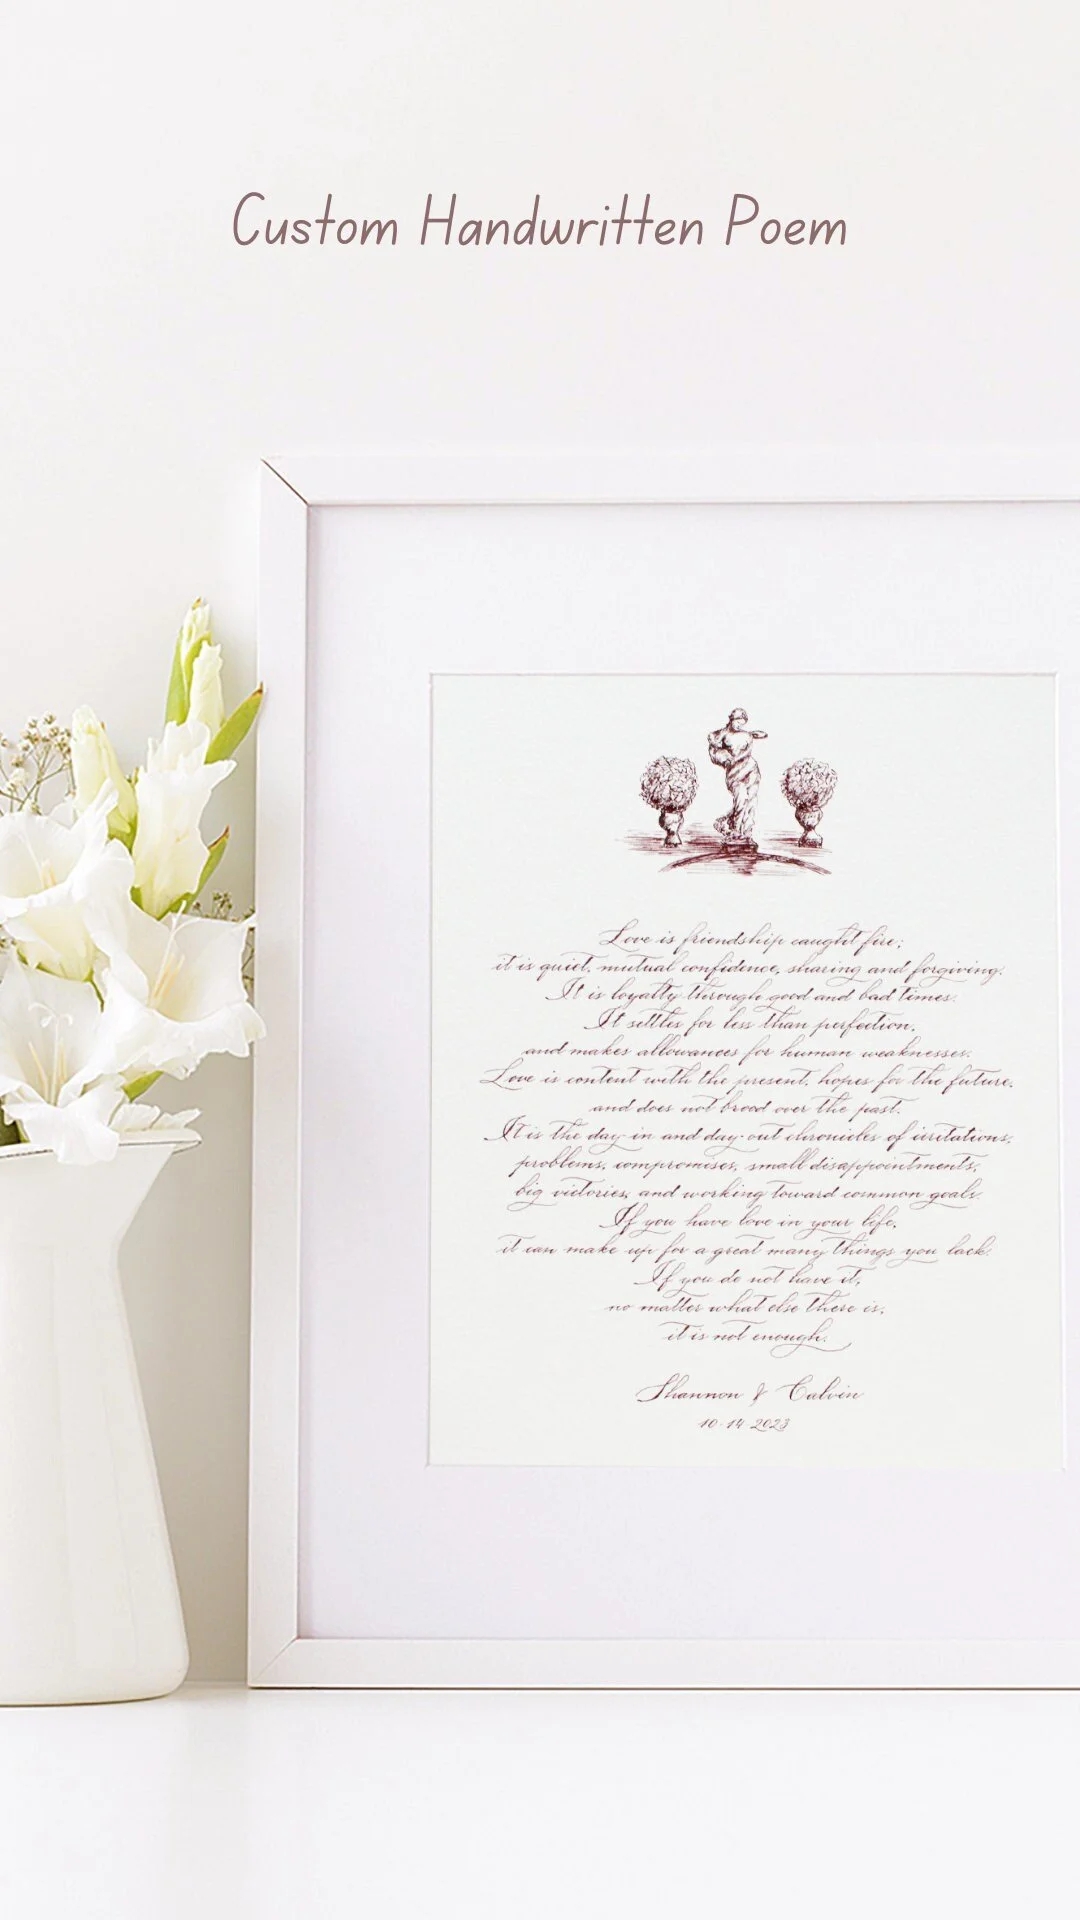 Custom Handwritten Poem
Love is friendship caught fire;
it is quiet, mutual confidence, sharing and forgiving.
It is loyalty through good and bad times.
It settles for less than perfection,
and makes allowances for human weaknesses.
Love is content with the present, hopes for the future,
and does not brood over the past.
It is the day-in and day-out chronicles of irritations,
problems, compromises, small disappointments,
big victories, and working toward common goals.
If you have love in your life,
it can make up for a great many things you lack.
If you do not have it,
no matter what else there is,
it is not enough.
Shannon & Calvin
10·14·2023